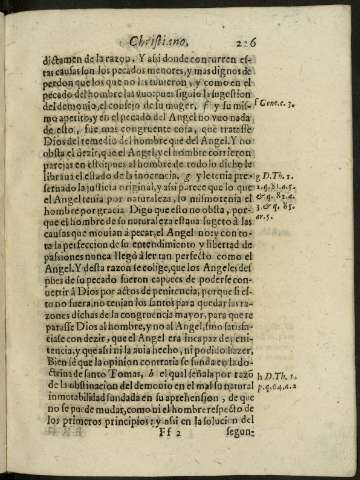 Christiano. 226
dictamen de la razon. Y assi donde concurren es-
tas causas son los pecados menores, y mas dignos de
perdon que los que no las tuuieron, y como en el
pecado del hombre las vuo, pues siguio la sugestion
del demonio, el consejo de su muger, f y su mis-
mo apetito, y en el pecado del Angel no vuo nada
de esto, fue mas congruente cosa, que tratasse
Dios del remedio del hombre que del Angel. Y no
obsta el dezir, que el Angel, y el hombre corrieron
parejas en esto, pues al hombre de todo lo dicho le
libraua el estado de la inocencia, g y le tenia pre-
seruado la justicia original, y assi parece que lo que
el Angel tenia por naturaleza, lo mismo tenia el
hombre por gracia. Digo que esto no obsta, por-
que el hombre de su naturaleza estaua sugeto à las
causas que mouian à pecar, el Angel no: y con to-
ta la perfeccion de su entendimiento y libertad de
passiones nunca llegò à ser tan perfecto como el
Angel. Y desta razon se colige, que los Angeles des-
pues de su pecado fueron capaces de poderse con-
uertir à Dios por actos de penitencia, porque si es-
to no fuera, no tenian los santos para que dar las ra-
zones dichas de la congruencia mayor, para que re-
parasse Dios al hombre, y no al Angel, sino satisfa-
ziase con dezir, que el Angel era incapaz de peni-
tencia, y que assi ni la auia hecho, ni podido hazer.
Bien sè que la opinion contraria se funda en la do-
ctrina de santo Tomas, h el qual señala por razõ
de la obstinacion del demonio en el mal su natural
inmotabilidad fundada en su aprehension, de que
no se puede mudar, como ni el hombre respecto de
los primeros principios: y assi en la solucion del
Ff 2 segun-
f Gene. c. 3.
g D. Th. 1.
2. q. 81. a. 5.
& q. 82. 4.
3. & q. 85.
ar. 5.
h D. Th. 1.
p. q. 64. a. 2